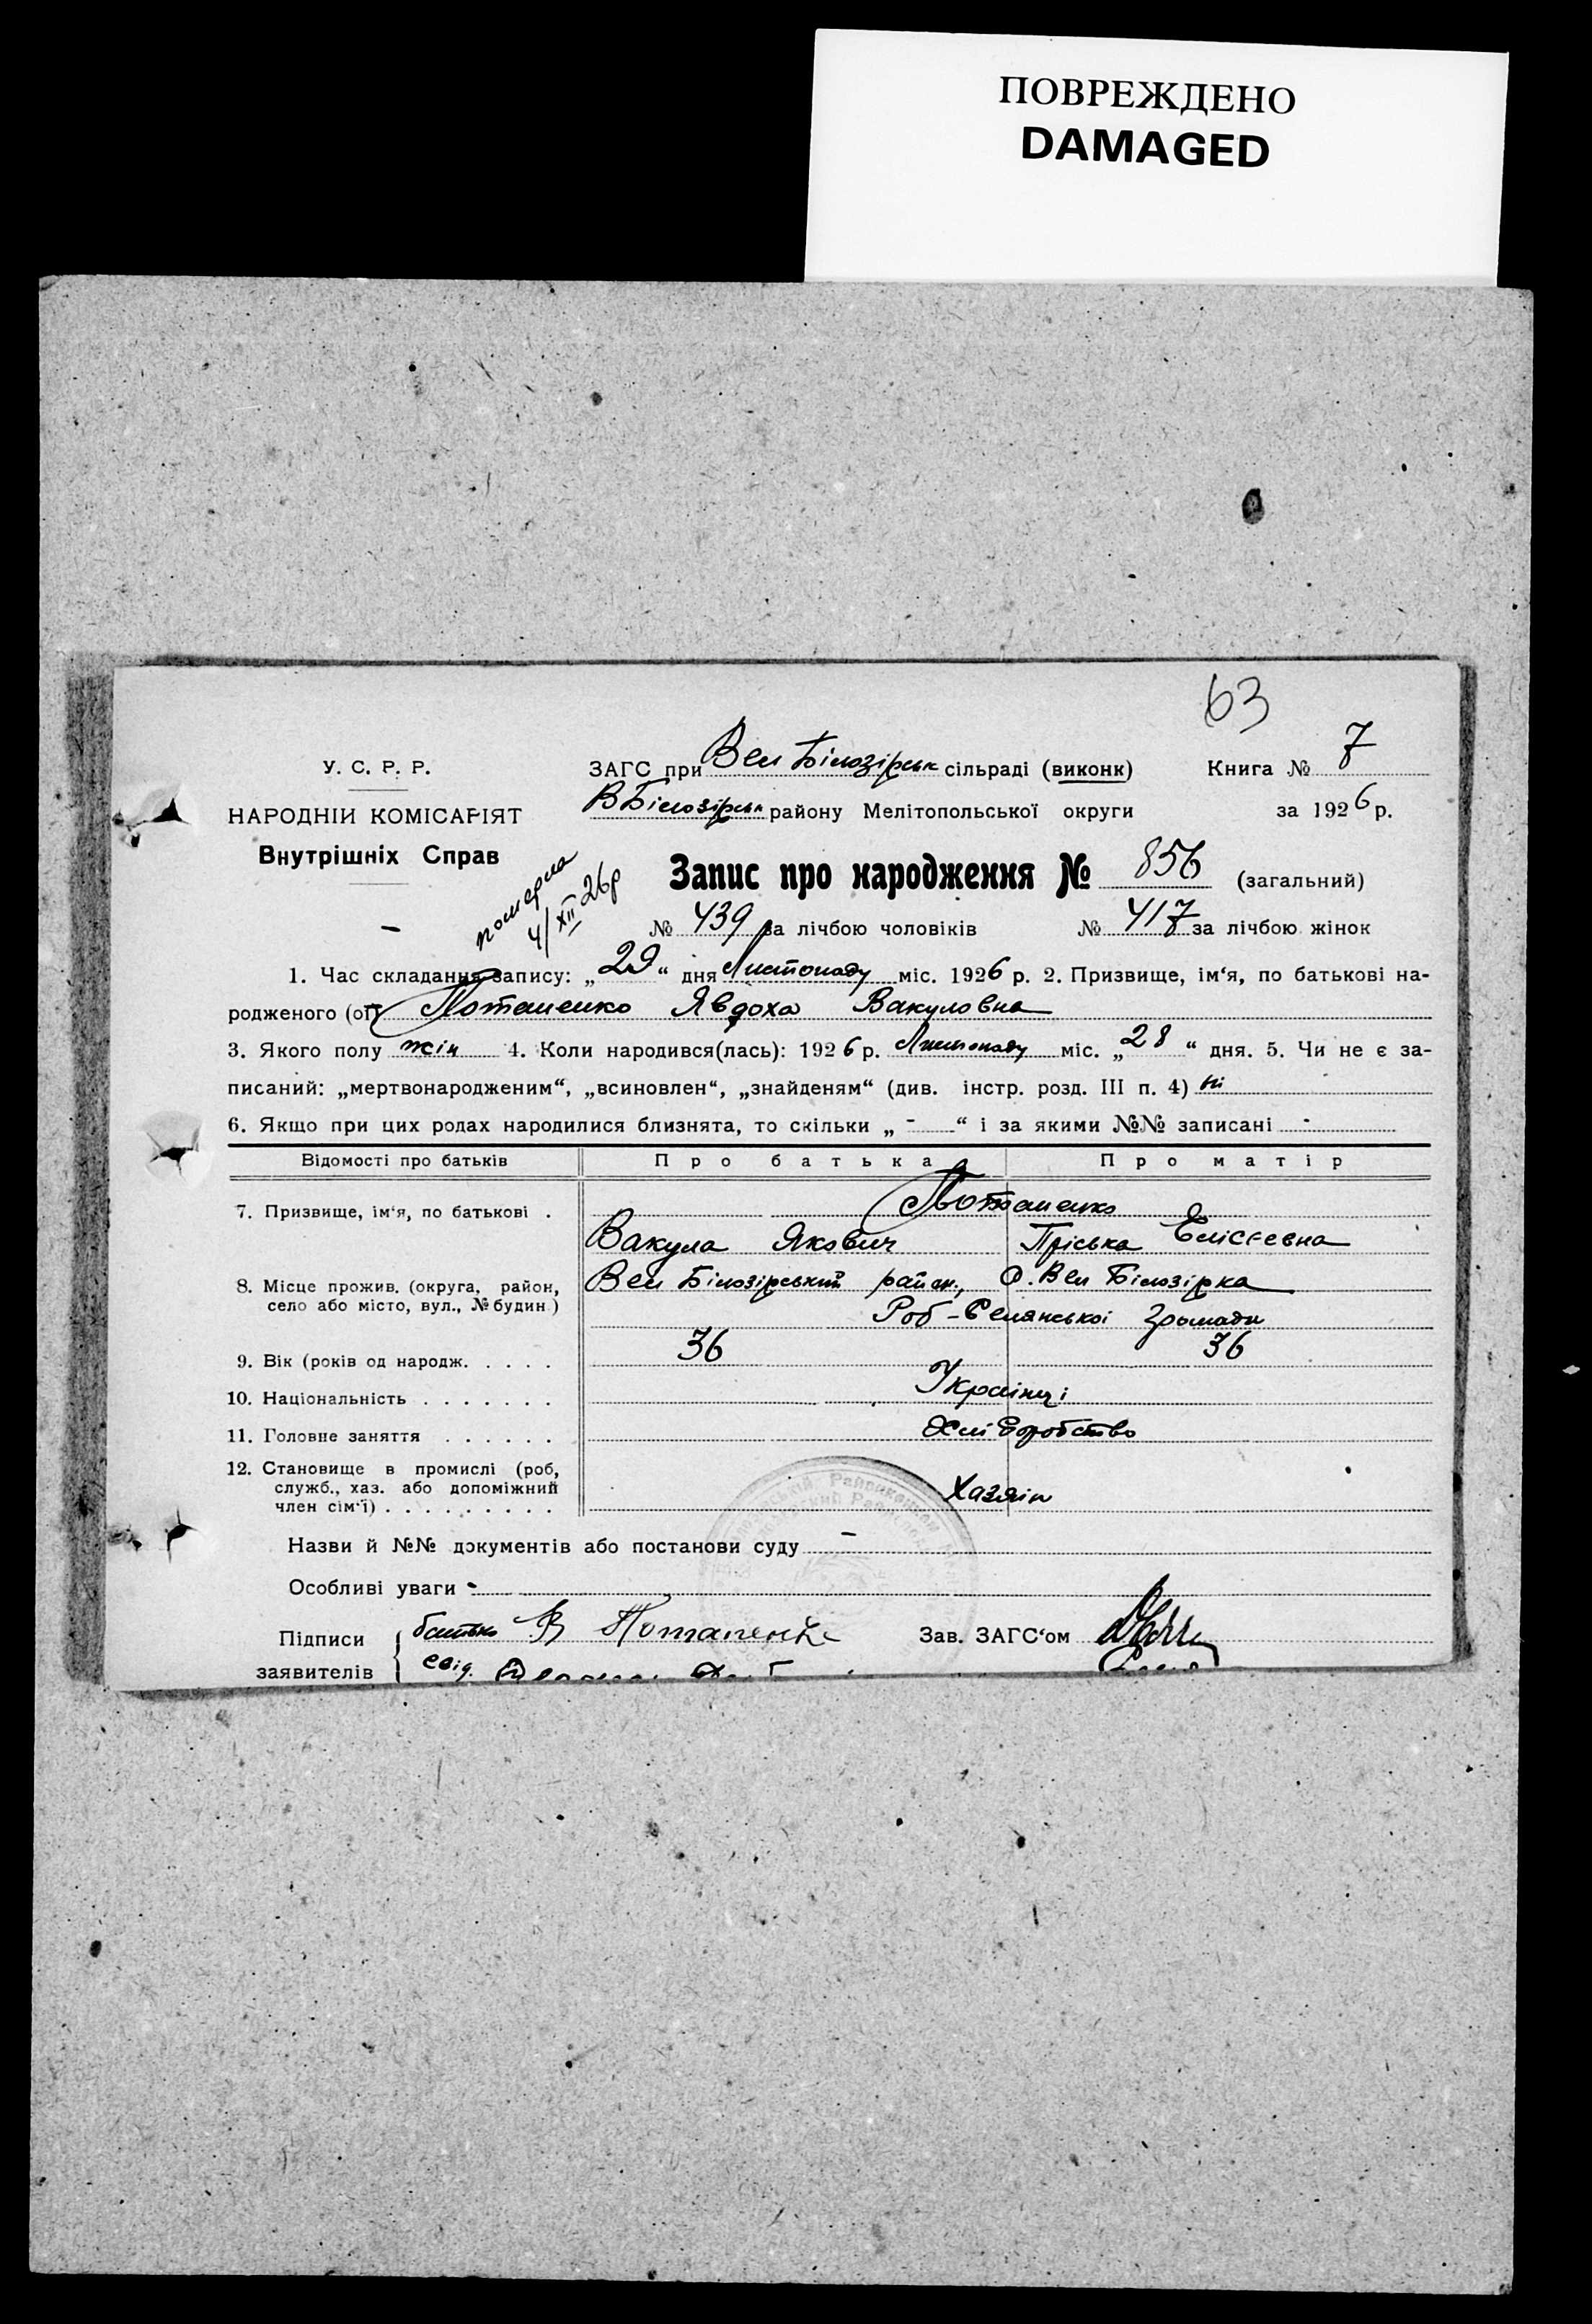 ПОВРЕЖДЕНО
DAMAGED
63
У. С. Р. Р.
ЗАГС при Вел Білозірськ сільраді (виконк) Книга № 7
НАРОДНІЙ КОМІСАРІЯТ
В Білозірськ району Мелітопольської округи за 1926 р.
Внутрішніх Справ
померла
4/XII 26р
Запис про народження № 856 (загальний)
№ 439 за лічбою чоловіків № 417 за лічбою жінок
1. Час складання запису: „29“ дня Листопаду міс. 1926 р. 2. Призвище, ім‘я, по батькові на-
родженого (ої) Потапенко Явдоха Вакуловна
3. Якого полу жін 4. Коли народився(лась): 1926 р. Листопаду міс. „28“ дня. 5. Чи не є за-
писаний: „мертвонародженим“, „всиновлен“, „знайденям“ (див. інстр. розд. III п. 4) ні
6. Якщо при цих родах народилися близнята, то скільки „ - “ і за якими №№ записані -
Відомості про батьків Про батька Про матір
7. Призвище, ім‘я, по батькові . Потапенко
Вакула Якович Пріська Елісеевна
8. Місце прожив. (округа, район, село або місто, вул., № будин.) Вел Білозірський район, С. Вел Білозірка
Роб-Селянської Громади
9. Вік (років од народж. . . . . 36 36
10. Національність . . . . . . . Українці
11. Головне заняття . . . . . . Хліборобство
12. Становище в промислі (роб,
служб., хаз. або допоміжний
член сім‘ї) . . . . . . . . . Хазяін
Назви й №№ документів або постанови суду -
Особливі уваги -
Підписи батько В Потапенко Зав. ЗАГС‘ом
заявителів свід.